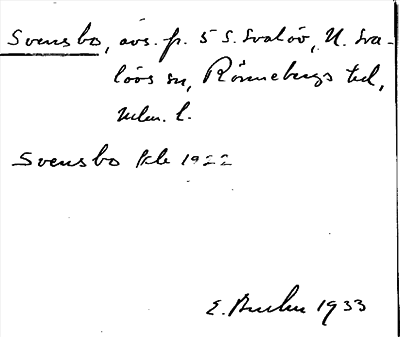 Svensbo, avs. fr. 5 S. Svalöv, N. Sva-
lövs sn, Rönnebergs hd,
Mlm. l.
Svensbo Kb 1922
E. 1933